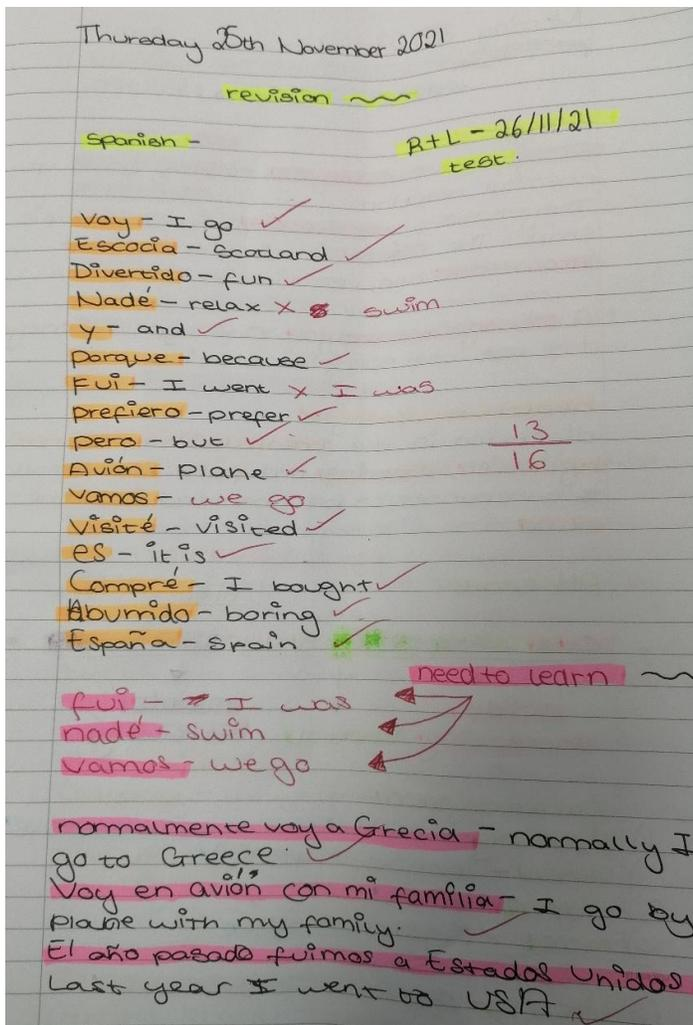 Thursday 25th November 2021
revision
Spanish - R+L - 26/11/21
test.
Voy - I go
Escocia - Scotland
Divertido - fun
Nadé - relax x swim
y - and
porque - because
Fui - I went x I was
prefiero - prefer
pero - but
13
16
Avión - plane
Vamos - we go
Visité - visited
es - it is
Compré - I bought
Aburrido - boring
España - Spain
need to learn
fui - I was
nadé - swim
vamos - we go
normalmente voy a Grecia - normally I
go to Greece.
Voy en avión con mi familia - I go by
plane with my family.
El año pasado fuimos a Estados Unidos
Last year I went to USA